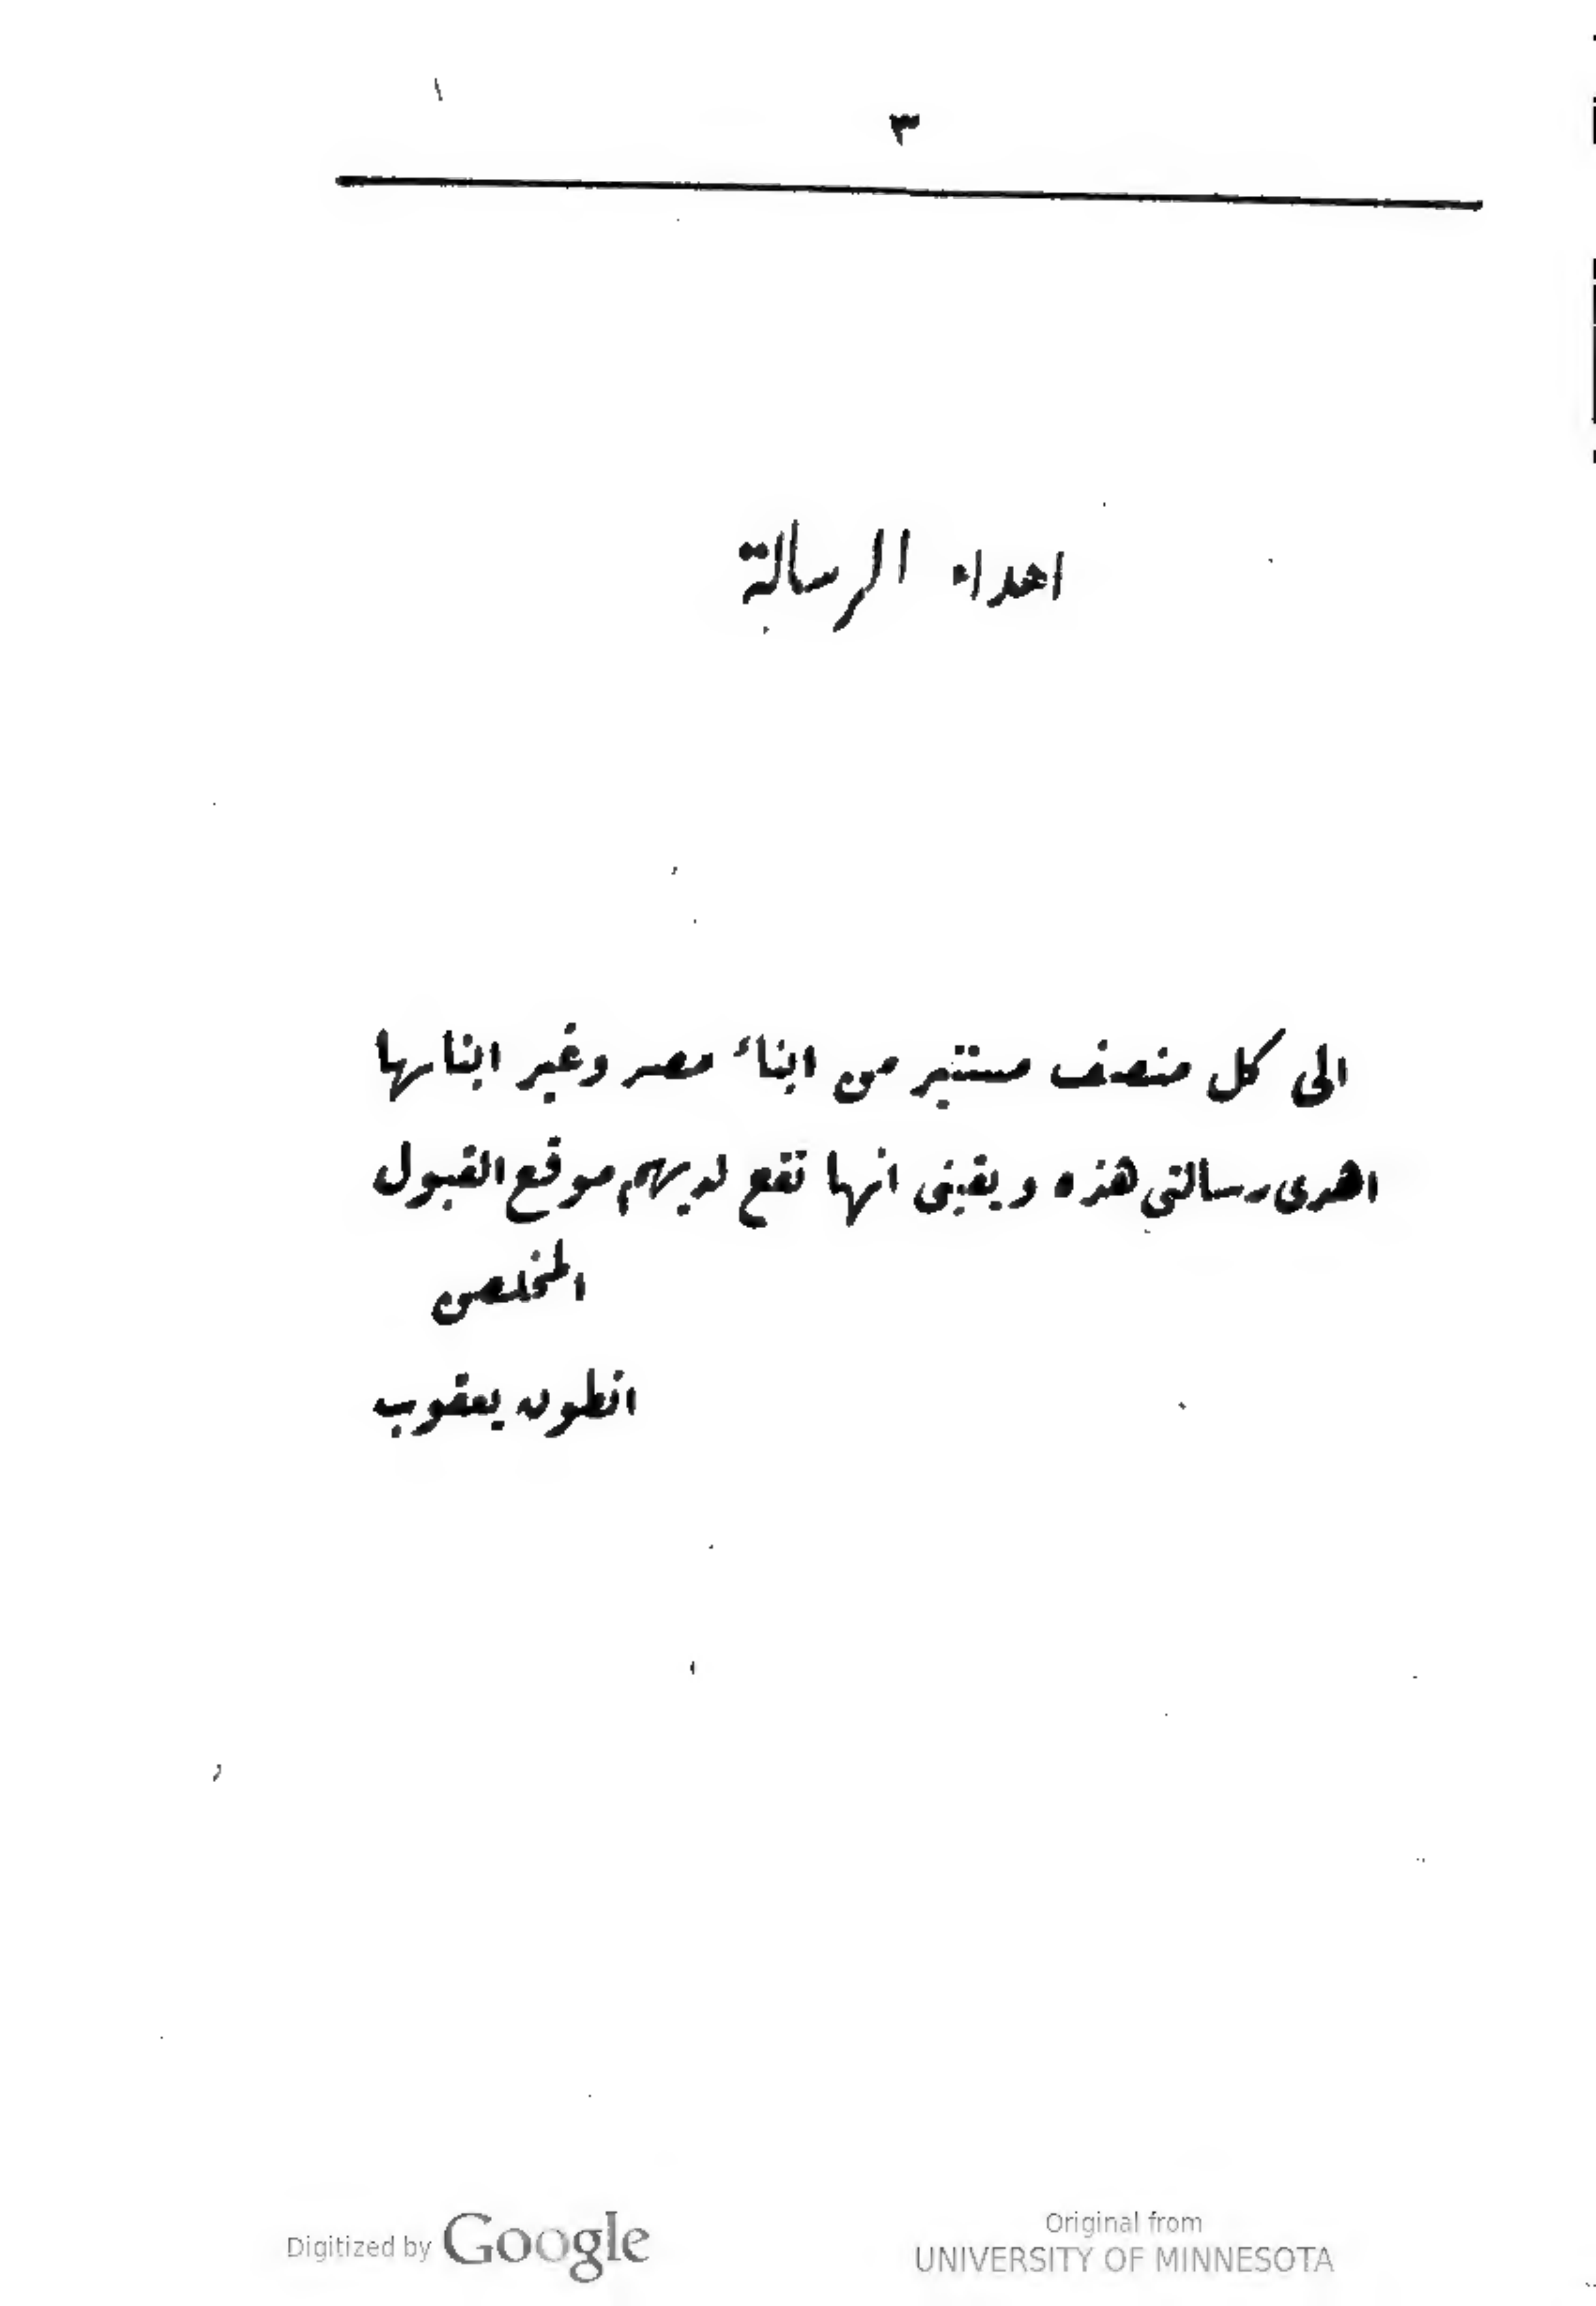 ٣
اهداء الرسالة
الى كل منصف مستنير من ابناء مصر وغير ابنائها
اهدى رسالتى هذه ويقينى انها تقع لديهم موقع القبول
المخلص
انطون يعقوب
Digitized by Google
Original from
UNIVERSITY OF MINNESOTA